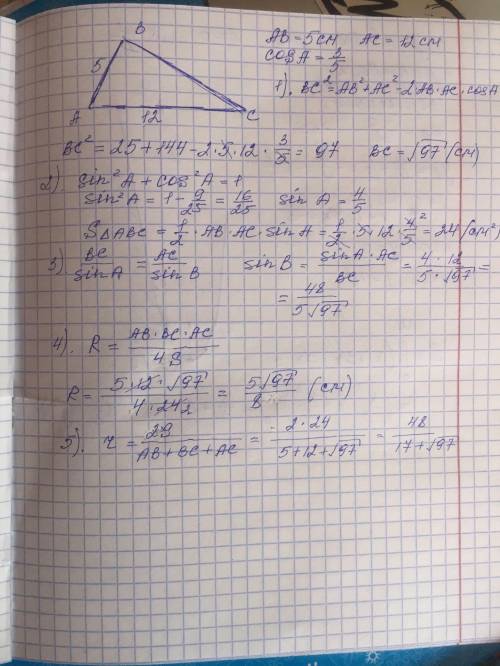 B
AB = 5 см AC = 12 см
cos A = 3/5
5
1). BC² = AB² + AC² - 2AB·AC·cosA
A 12 C
BC² = 25 + 144 - 2·5·12·3/5 = 97 BC = √97 (см)
2) sin²A + cos²A = 1
sin²A = 1 - 9/25 = 16/25 sin A = 4/5
S△ABC = 1/2 · AB·AC·sin A = 1/2 · 5·12·4/5 = 24 (см²)
3) BC/sin A = AC/sin B sin B = sin A · AC/BC = 4·12/5·√97 =
= 48/5√97
4). R = AB·BC·AC/4S
R = 5·12·√97/4·24 2 = 5√97/8 (см)
5). r = 2S/AB+BC+AC = 2·24/5+12+√97 = 48/17+√97